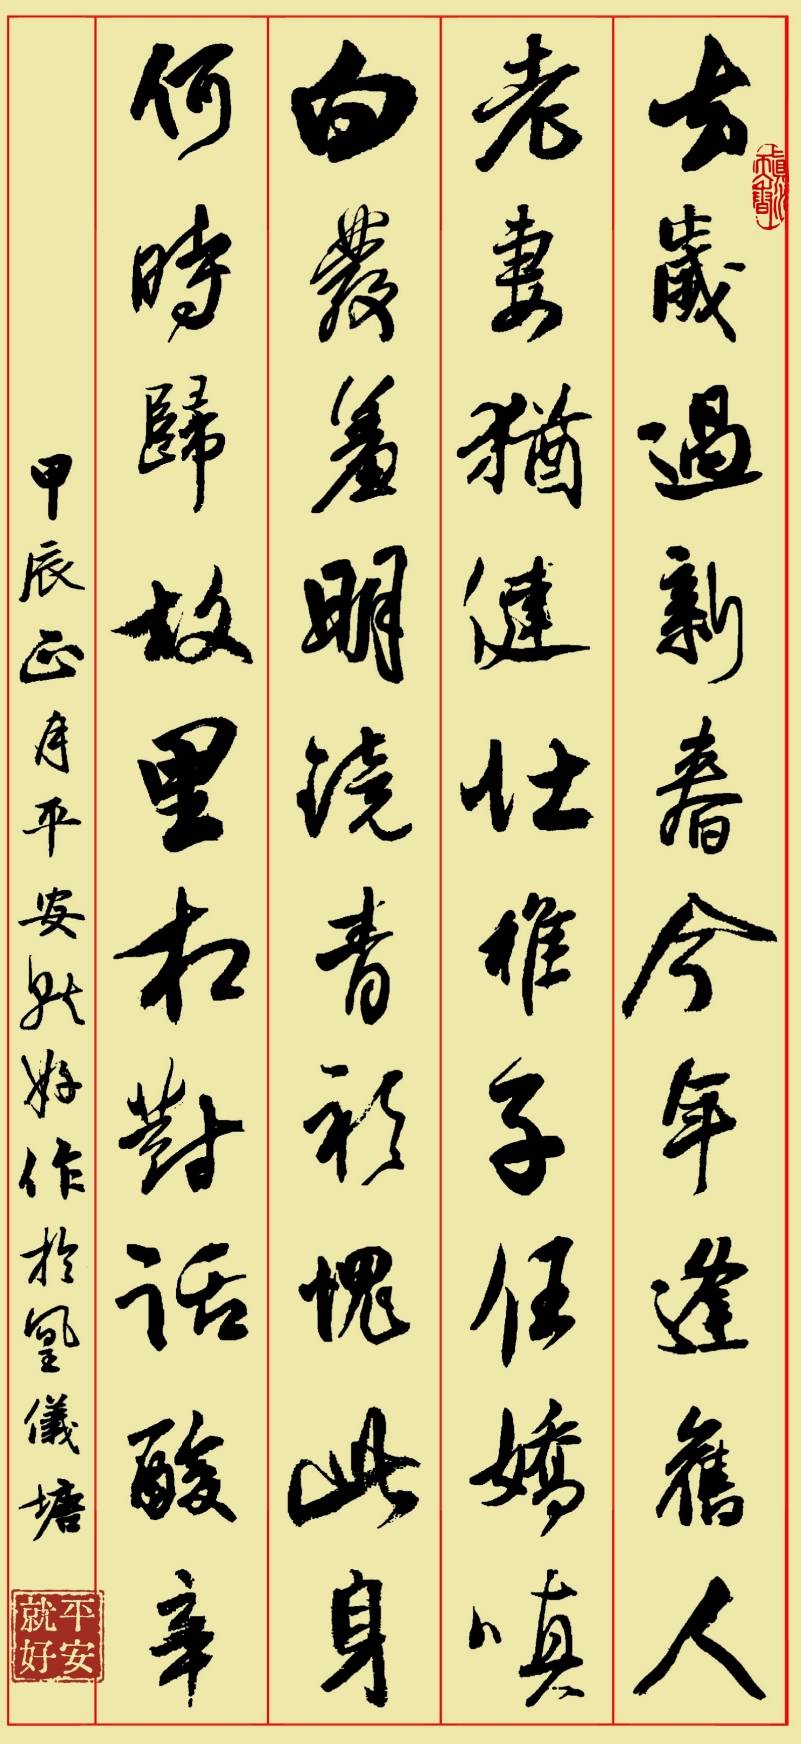 去歲過新春今年逢舊人
老妻猶健壯稚子任嬌嗔
白發羞明鏡青衫愧此身
何時歸故里相對話酸辛
甲辰正月平安就好作於凰儀塘
平安就好